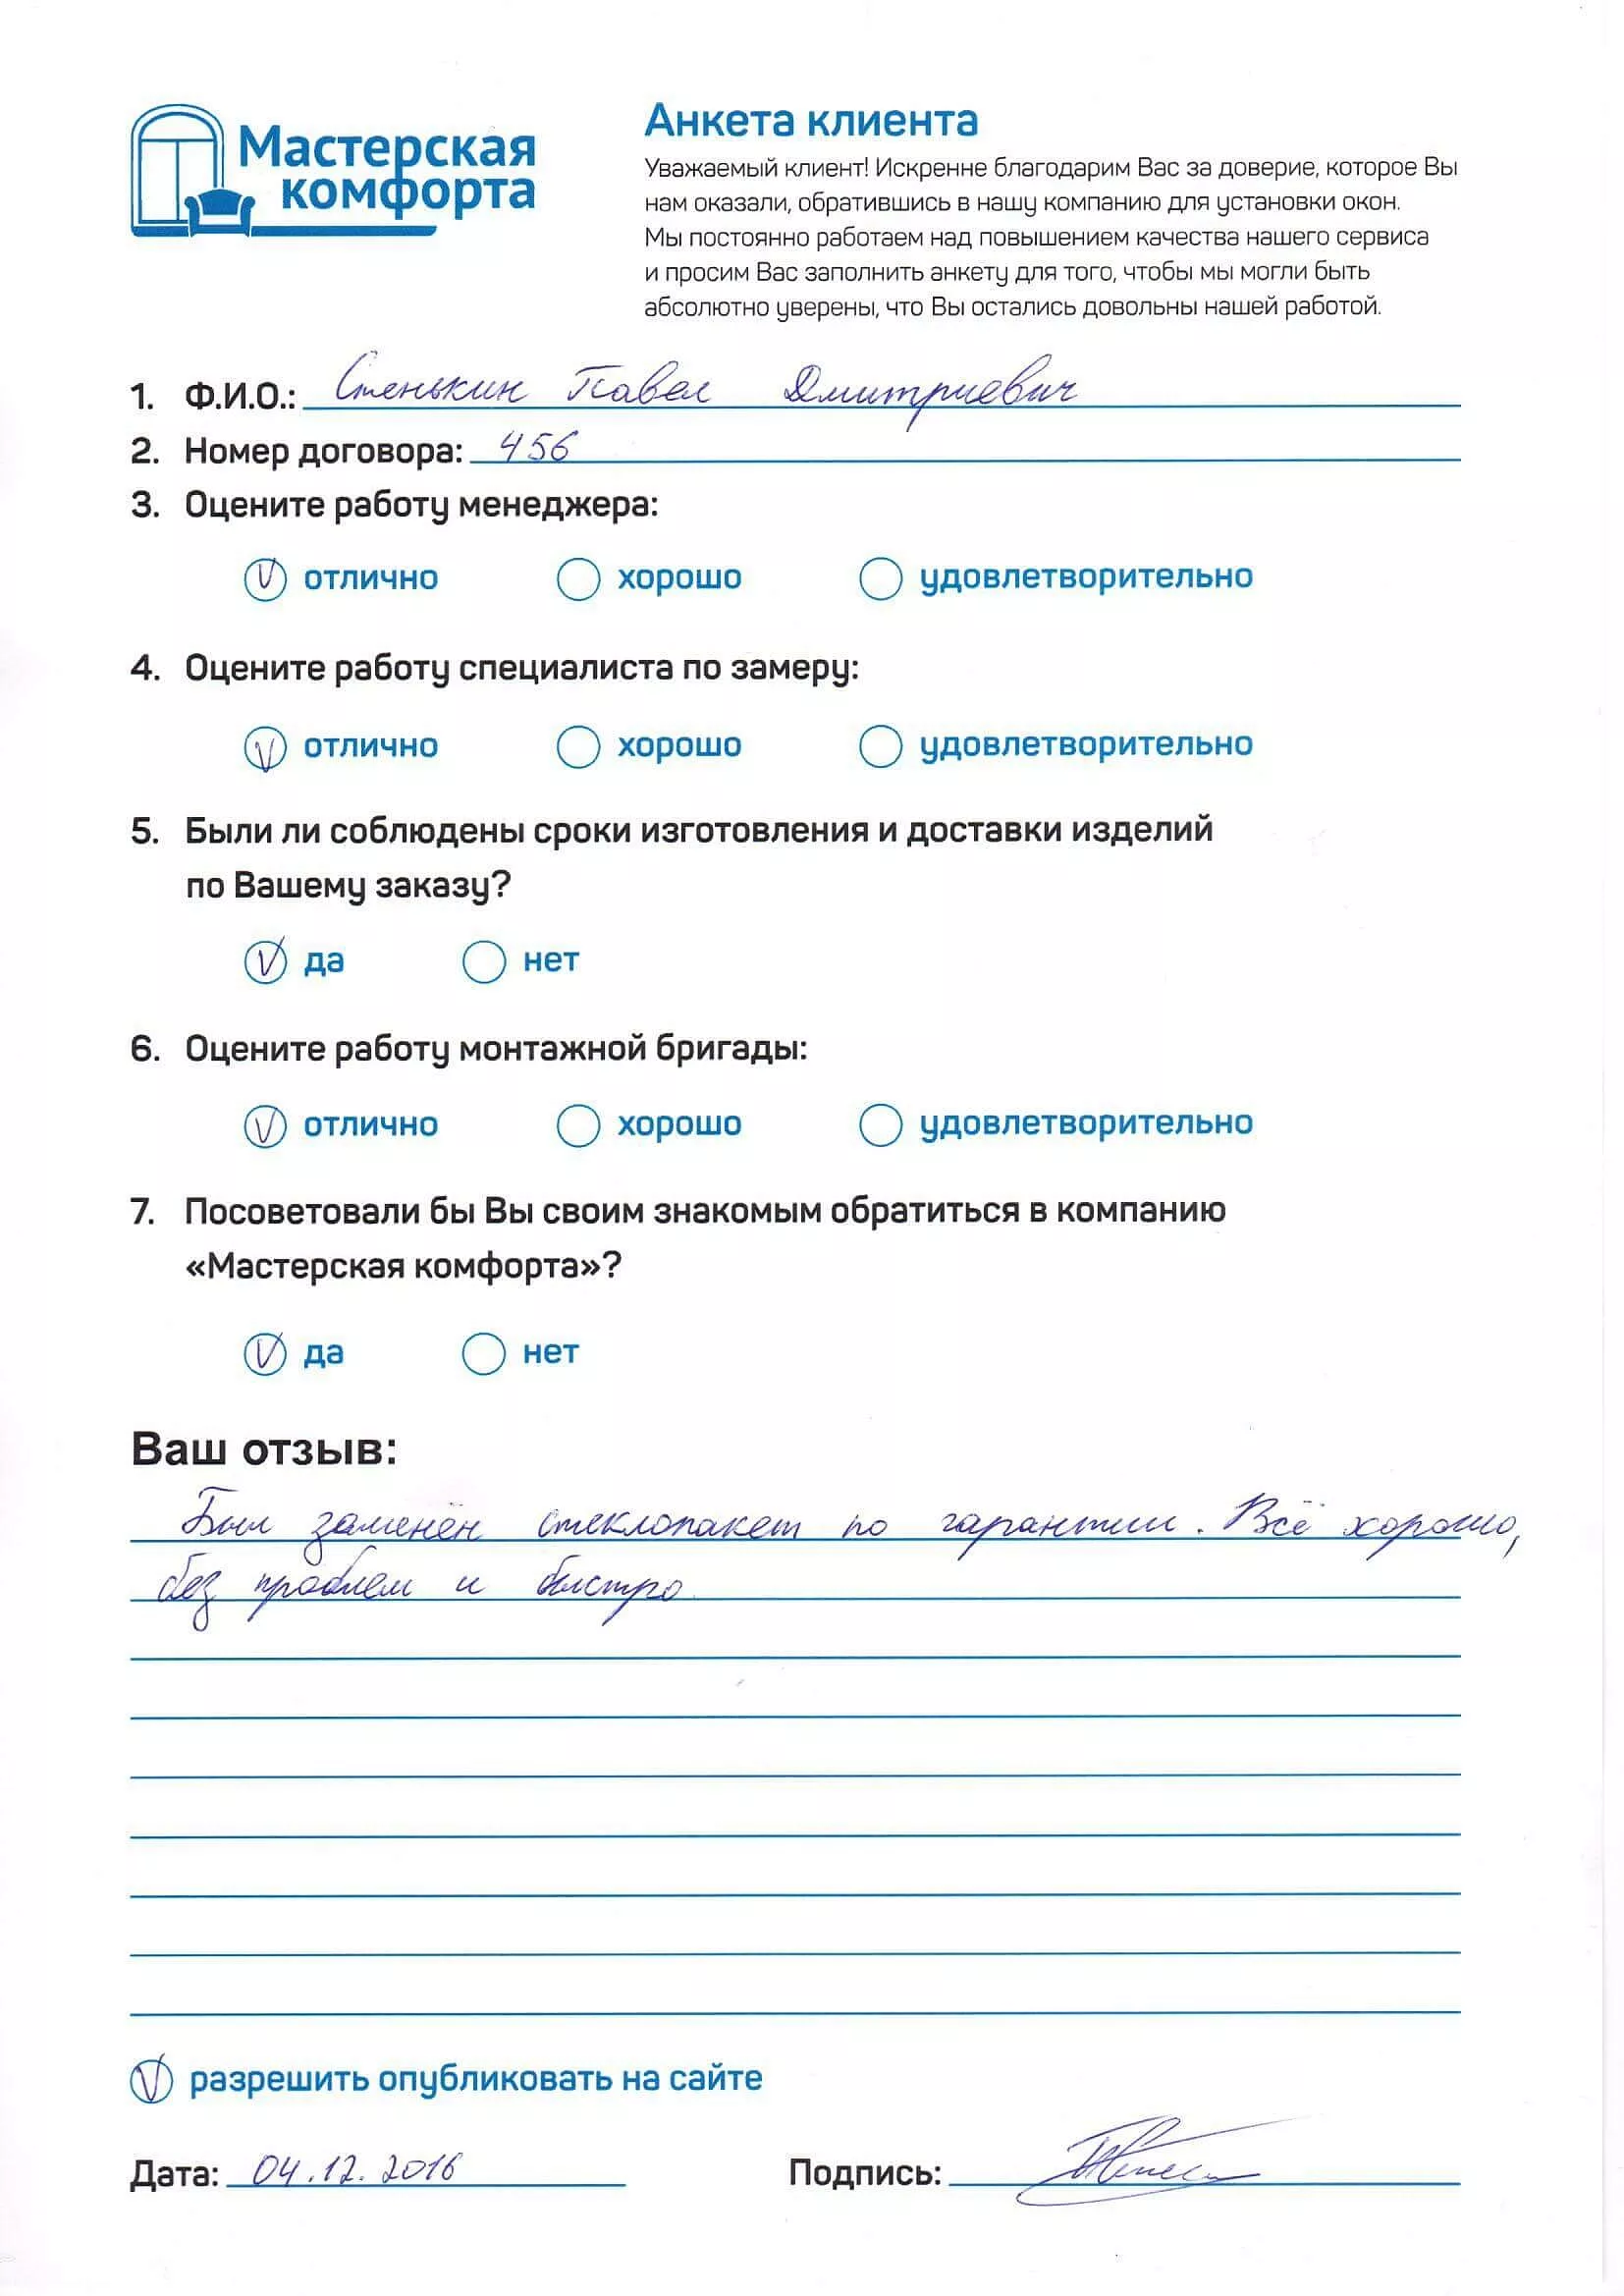 Мастерская
комфорта
Анкета клиента
Уважаемый клиент! Искренне благодарим Вас за доверие, которое Вы
нам оказали, обратившись в нашу компанию для установки окон.
Мы постоянно работаем над повышением качества нашего сервиса
и просим Вас заполнить анкету для того, чтобы мы могли быть
абсолютно уверены, что Вы остались довольны нашей работой.
1. Ф.И.О.: Стенькин Павел Дмитриевич
2. Номер договора: 456
3. Оцените работу менеджера:
V отлично хорошо удовлетворительно
4. Оцените работу специалиста по замеру:
V отлично хорошо удовлетворительно
5. Были ли соблюдены сроки изготовления и доставки изделий
по Вашему заказу?
V да нет
6. Оцените работу монтажной бригады:
V отлично хорошо удовлетворительно
7. Посоветовали бы Вы своим знакомым обратиться в компанию
«Мастерская комфорта»?
V да нет
Ваш отзыв:
Был заменён стеклопакет по гарантии. Всё хорошо,
без проблем и быстро.
V разрешить опубликовать на сайте
Дата: 04.12.2016 Подпись: